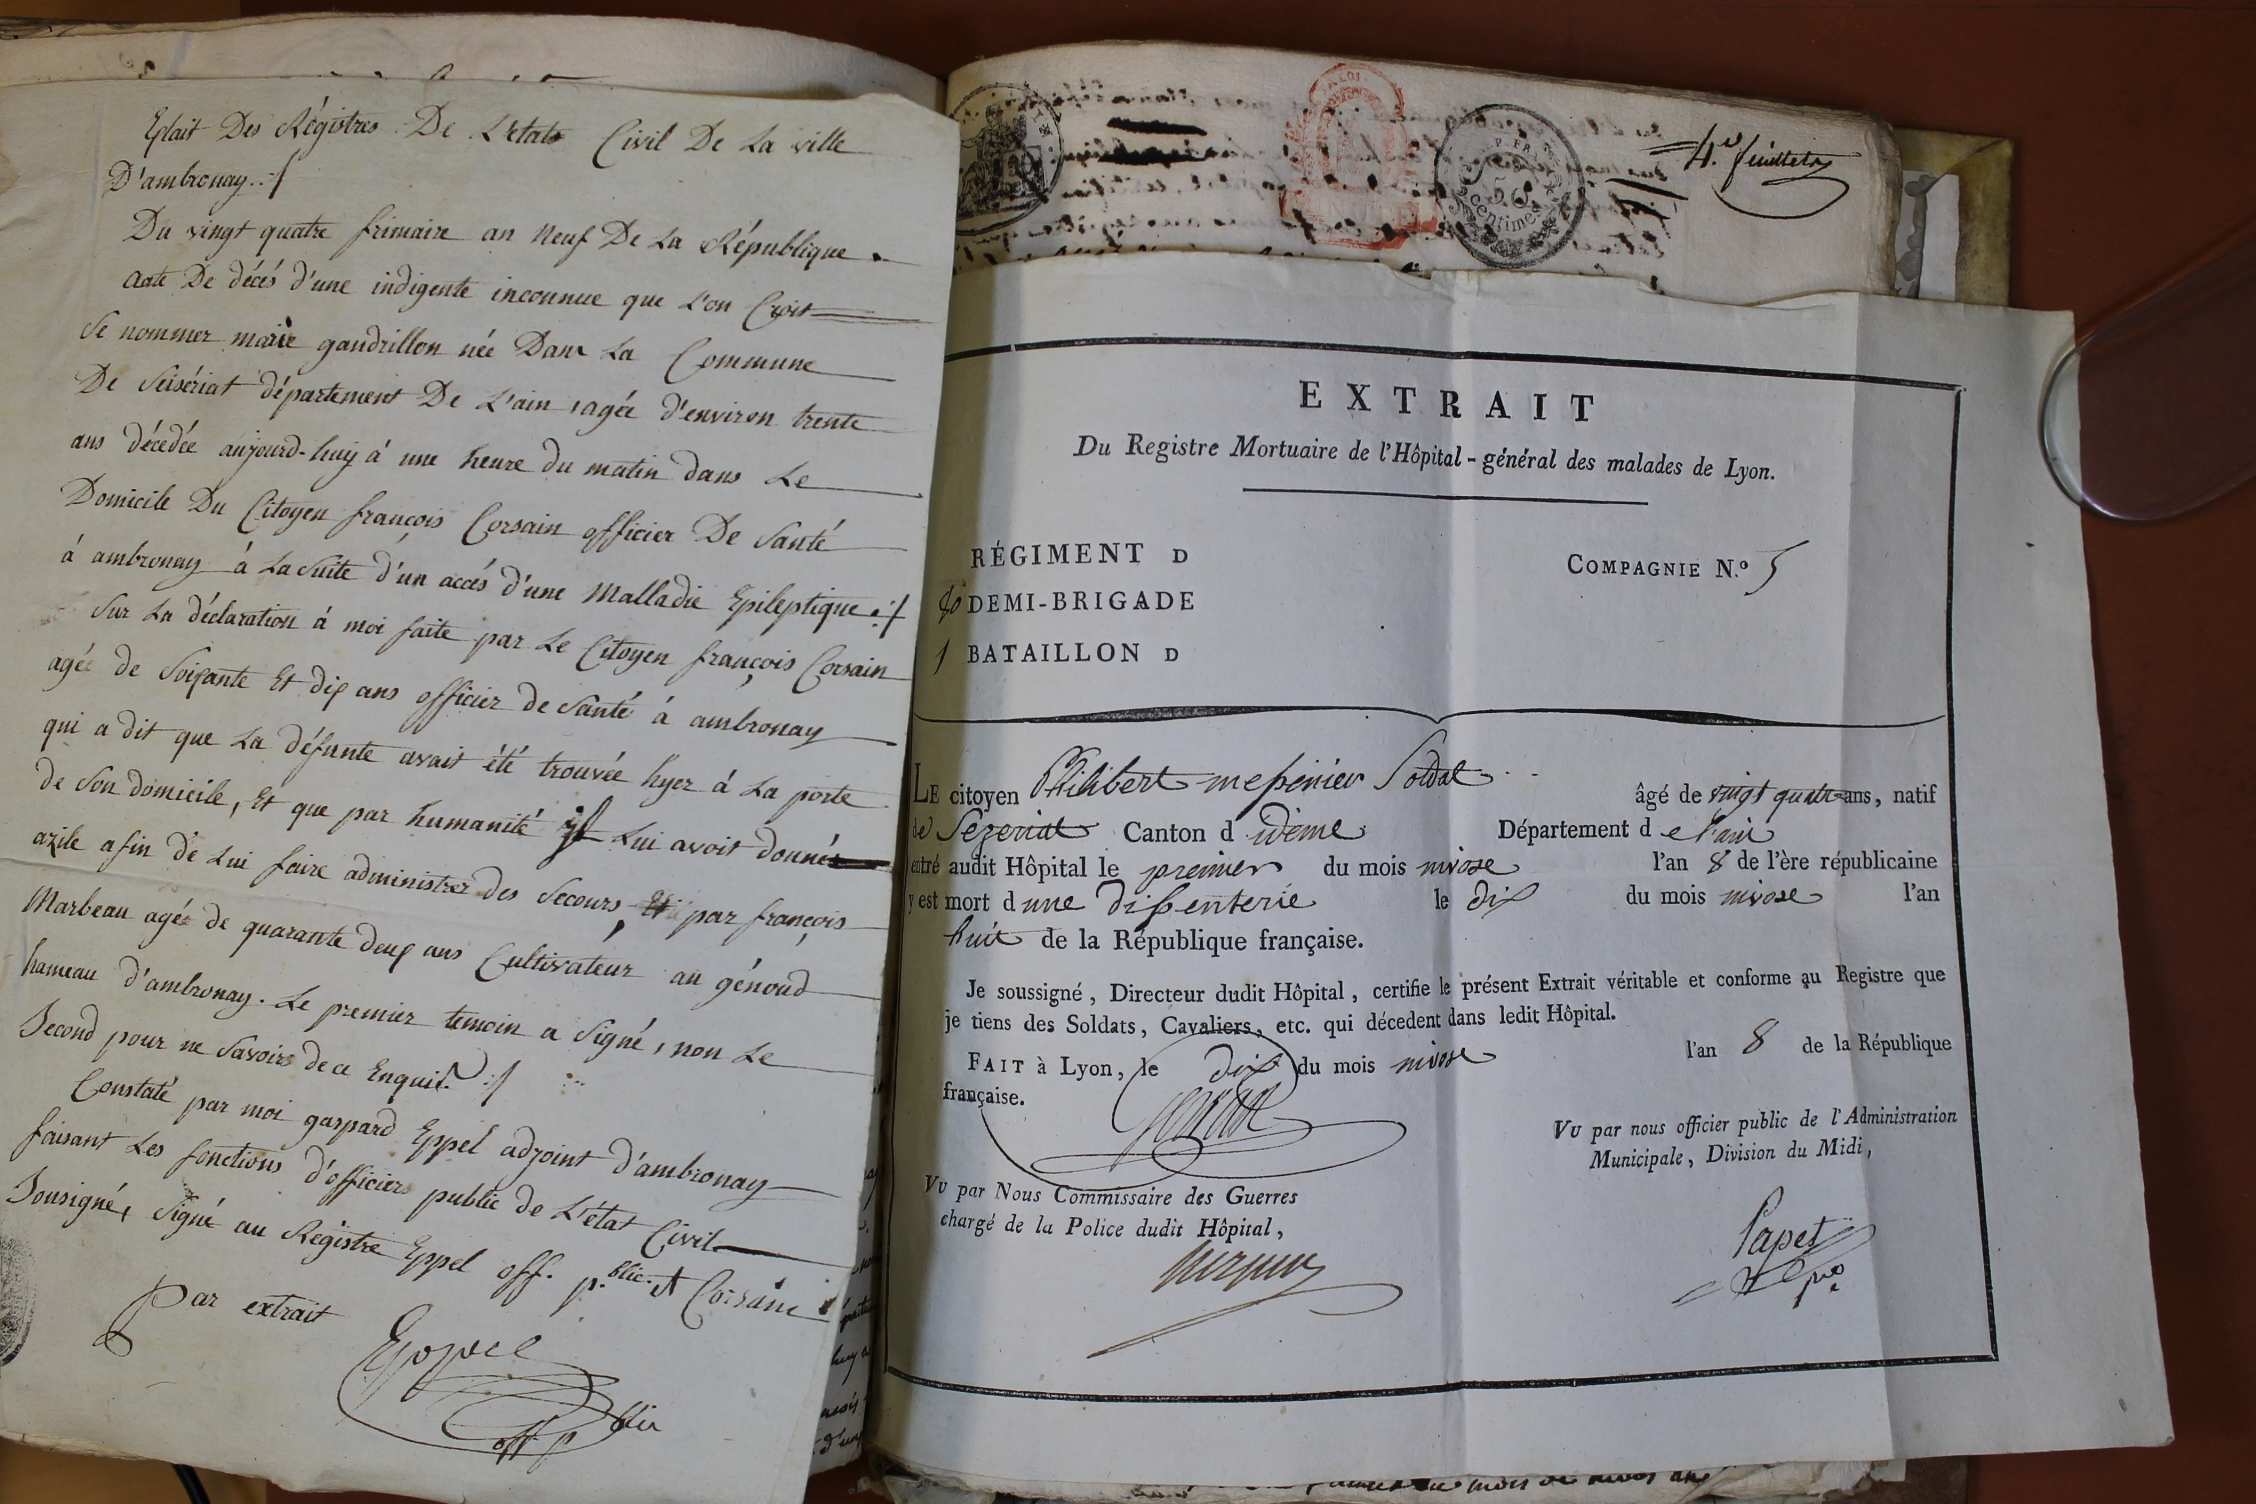 Extait Des Régistres De L'etats Civil De La ville
D'ambronay
Du vingt quatre frimaire an Neuf De La République
acte De décés d'une indigente inconnue que L'on Croit
Se nommer marie gaudrillon née Dans La Commune
De Seisériat département De L'ain, agée d'environ trente
ans décédée aujourd-huy á une heure du matin dans Le
Domicile Du Citoyen françois Corsain officier De Santé
á ambronay á La Suite d'un accés d'une Malladie Epileptique
Sur La déclaration á moi faite par Le Citoyen françois Corsain
agée de Soixante Et dix ans officier de Santé á ambronay
qui a dit que La défunte avait été trouvée hyer á La porte
de Son domicile, Et que par humanité il Lui avoit donné
azile afin de Lui faire administrer des Secours, Et par françois
Marbeau agée de quarante deux ans Cultivateur au génoud
hameau d'ambronay. Le premier temoin a Signé, non Le
Second pour ne Savoir de ce Enquis
Constaté par moi gaspard Eppel adjoint d'ambronay
faisant Les fonctions d'officiers public de L'état Civil
Sousigné, Signé au Régistre Eppel off. p.blic. et Corsain
Par extrait
Eppel
off. p blic
4.e feuillet
50
centimes
EXTRAIT
Du Registre Mortuaire de l'Hôpital-général des malades de Lyon.
RÉGIMENT D
COMPAGNIE N.o 5
DEMI-BRIGADE
1 BATAILLON D
LE citoyen Philibert mepinier Soldat âgé de vingt quatre ans, natif
de Sezeriat Canton d ideme Département d e l'ain
entré audit Hôpital le premier du mois nivose l'an 8 de l'ère républicaine
y est mort d une dissenterie le dix du mois nivose l'an
huit de la République française.
Je soussigné, Directeur dudit Hôpital, certifie le présent Extrait véritable et conforme au Registre que
je tiens des Soldats, Cavaliers, etc. qui décedent dans ledit Hôpital.
FAIT à Lyon, le dix du mois nivose l'an 8 de la République
française.
VU par nous officier public de l'Administration
Municipale, Division du Midi,
VU par Nous Commissaire des Guerres
chargé de la Police dudit Hôpital,
Papet